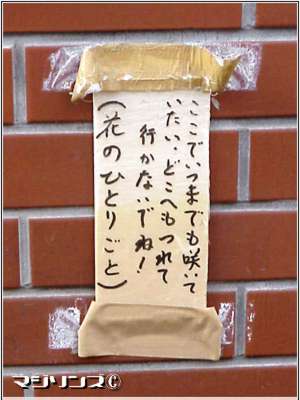 ここでいつまでも咲いて
いたい・どこへもつれて
行かないでね!
(花のひとりごと)
マジリンズ©